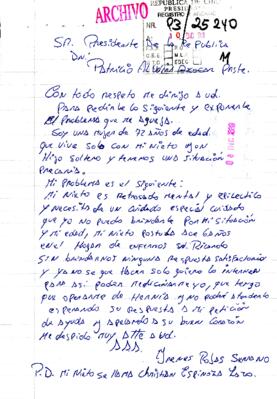 ARCHIVO
REPUBLICA DE CHILE
PRESIDENCIA
REGISTRO
NR. 93/25240
Sr. Presidente de la República
Dn.
Patricio Aylwin Azocar Pste.
Con todo respeto me dirijo a ud.
Para pedirle lo siguiente y exponerle
el problema que me aqueja.
Soy una mujer de 72 años de edad.
que vive solo con mi Nieto y un
Hijo soltero y tenemos una situación
precaria.
Mi problema es el siguiente:
Mi Nieto es retrasado mental y epileptico
y necesita de un cuidado especial cuidado
que yo no puedo brindarle por mi situación
y mi edad, mi Nieto postuló ace 6 años
en el Hogar de enfermos Sn. Ricardo
sin brindarnos ninguna respuesta satisfactoria
y ya no se que hacer solo quiero lo internen
para asi poder medicinarme yo, que tengo
que operarme de Hernia y no podré atenderlo
esperando su respuesta a mi petición
de ayuda y apelando a su buen corazón
me despido muy Atte a ud.
Irenes Rojas Serrano
P.D. Mi Nieto se llama Christian Espinoza